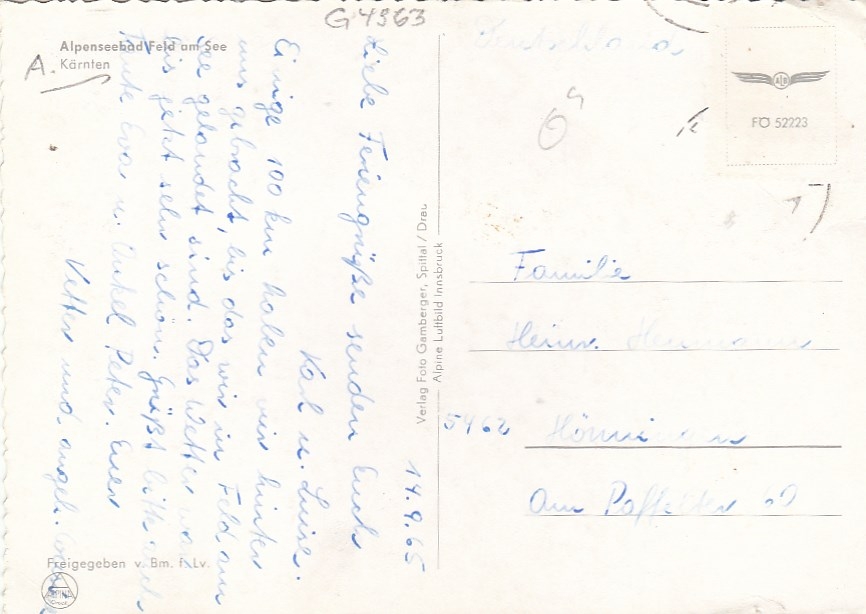 G4963
Alpenseebad Feld am See
Kärnten
A.
14.9.65
Liebe Feriengrüße senden Euch
Karl u. Luise.
Einige 100 km haben wir hinter
uns gebracht, bis das wir in Feld am
See gelandet sind. Das Wetter war
bis jetzt sehr schön. Grüßt bitte auch
Tante Eva u. Onkel Peter. Euer
Vetter und angeh.
Freigegeben v. Bm. f. Lv.
ALPINE
Verlag Foto Gamberger, Spittal / Drau
Alpine Luftbild Innsbruck
Deutschland
FÖ 52223
Familie
Heinr. Hermann
5462 Hönningen
Am